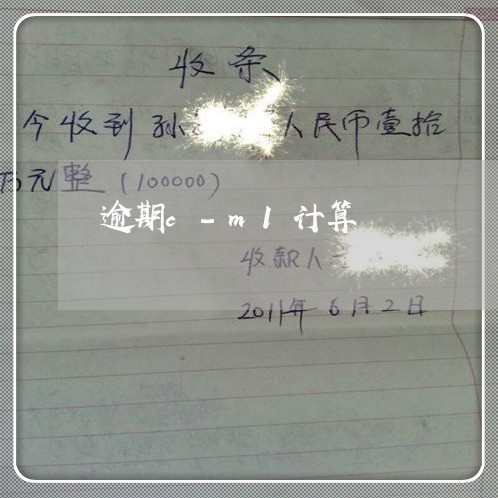 收条
今收到孙人民币壹拾
万元整(100000)
逾期c-m1计算
收款人
2011年6月2日